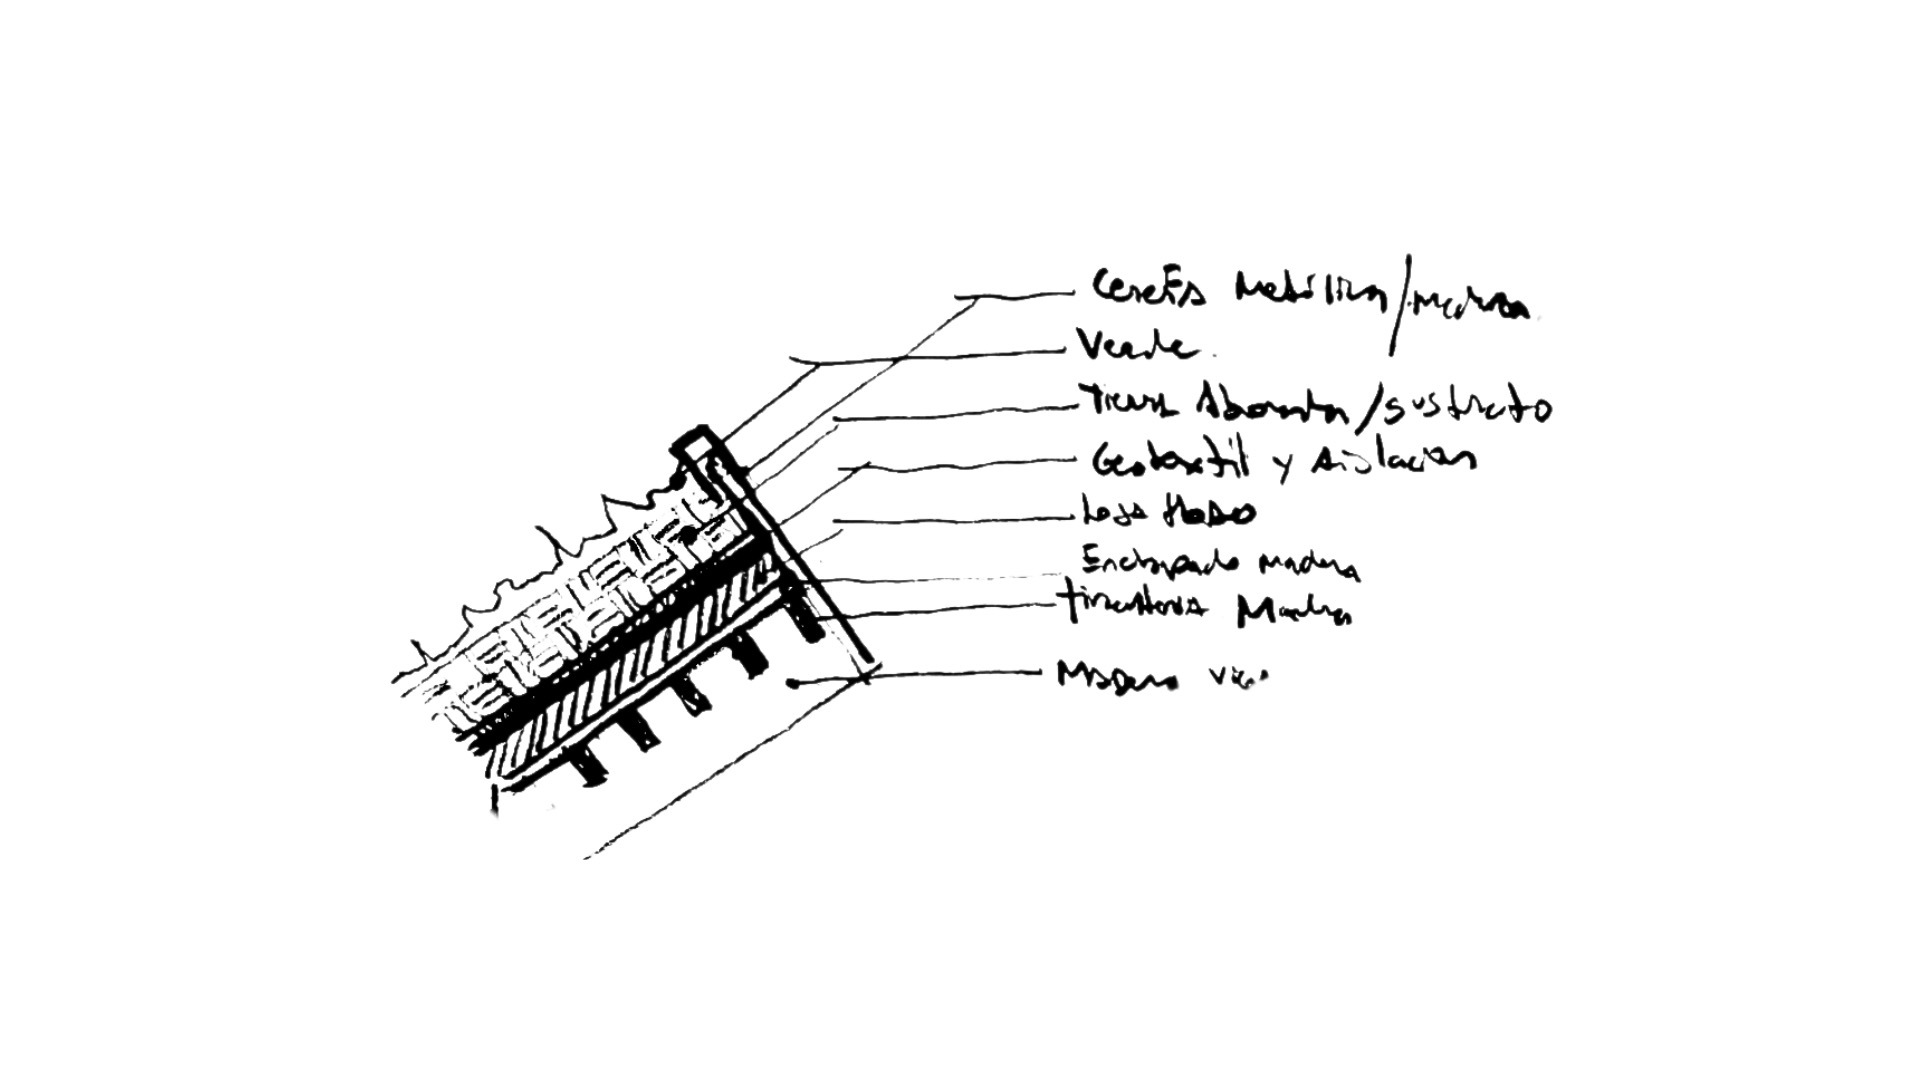 Cenefa Metálica/madera
Verde.
Tierra Abonada/sustrato
Geotextil y Aislacion
Losa HoAo
Enchapado madera
Tirantería Madera
Madera Viga